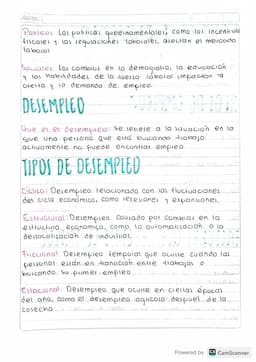 Politicos: Las politicas gubernamentales, como los incentivos
fiscales y las regulaciones laborales, afectan el mercado
laboral
Sociales: Los cambios en la demografia, la educación
y las habilidades de la fuerza laboral impactan la
oferta y la demanda de empleo
DESEMPLEO
Que es el desempleo: Se refiere a la situación en la
que una persona que está buscando trabajo
activamente no puede encontrar empleo
TIPOS DE DESEMPLEO
Ciclico: Desempleo relacionado con las fluctuaciones
del ciclo económico, como recesiones y expansiones.
Estructural: Desempleo causado por cambios en la
estructura económica, como la automatización o la
deslocalización de industrias.
Friccional: Desempleo temporal que ocurre cuando las
personas están en transición entre trabajos o
buscando su primer empleo
Estacional: Desempleo que ocurre en ciertas épocas
del año, como el desempleo agricola después de la
cosecha
Powered by CS CamScanner